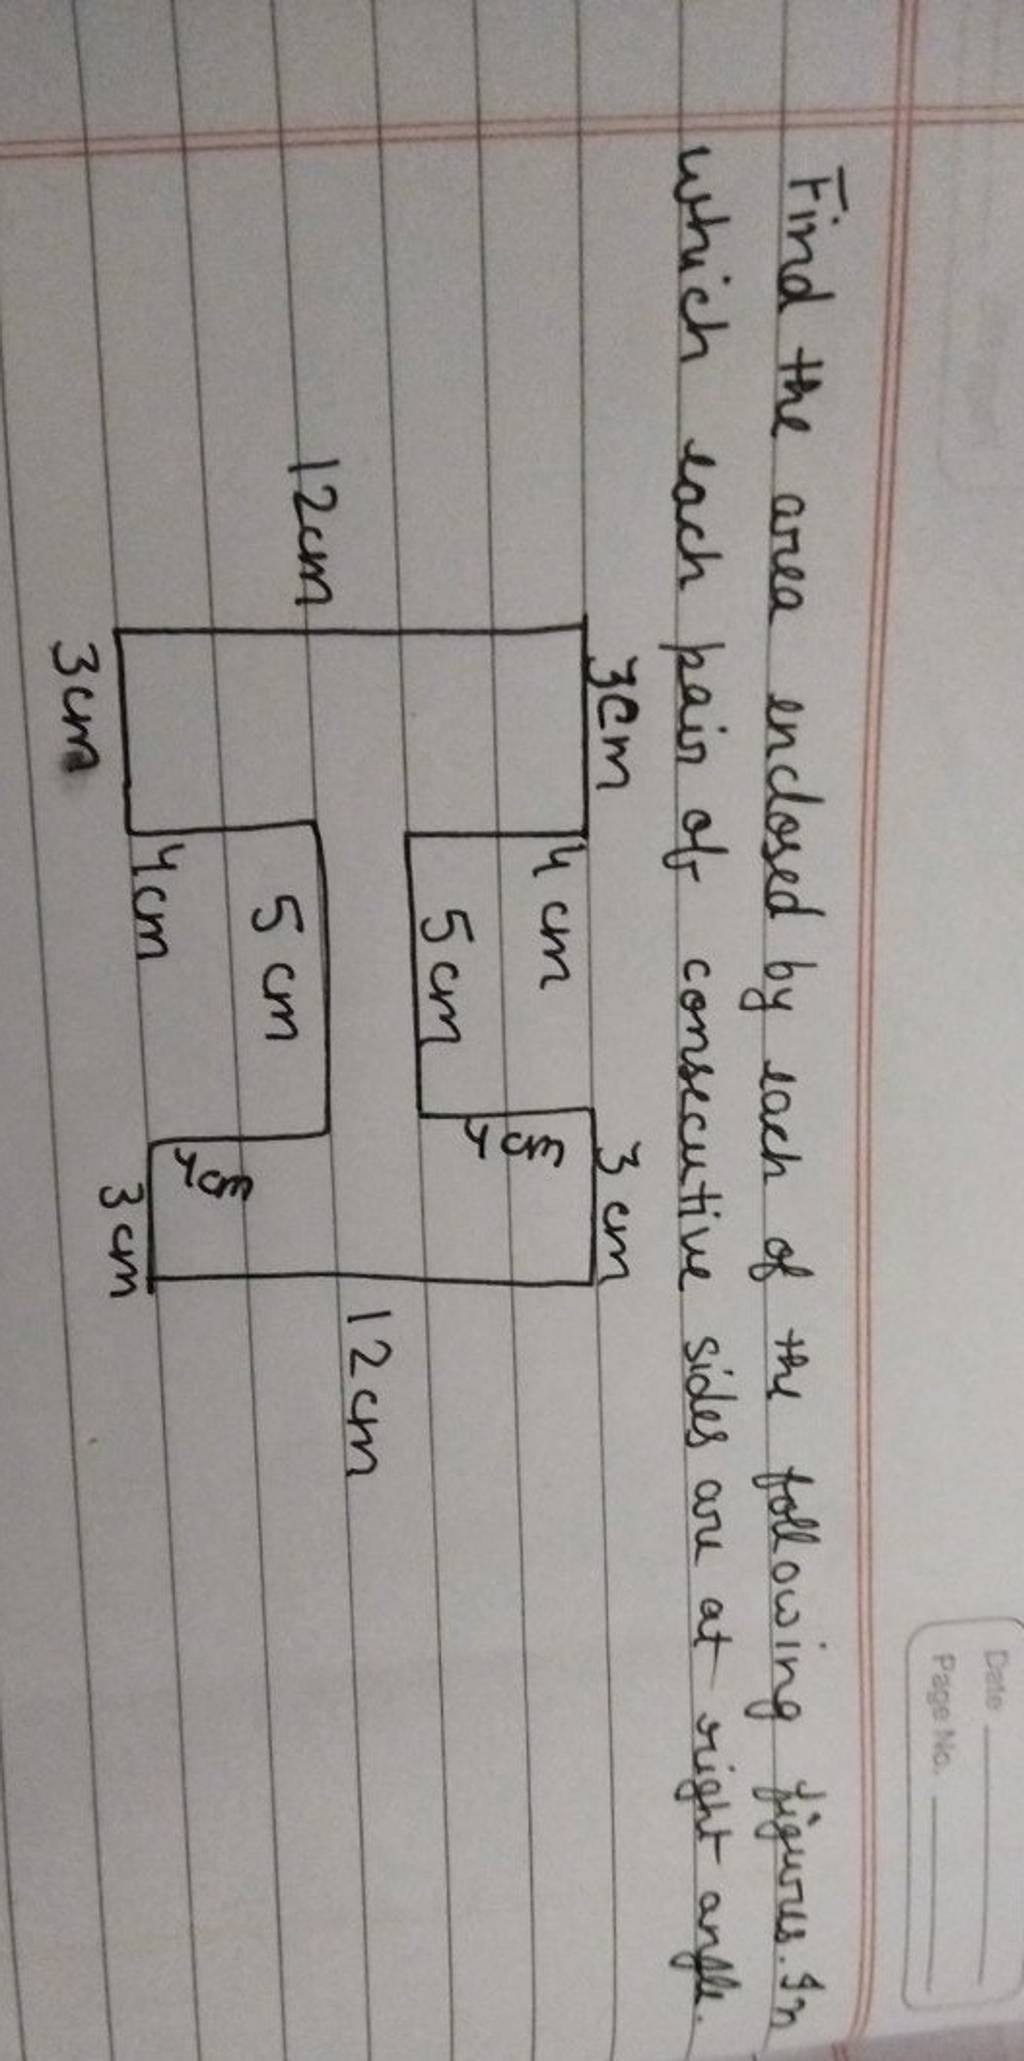 Date
Page No.
Find the area enclosed by each of the following figures. In
which each pair of consecutive sides are at right angle.
3cm
3 cm
4 cm
4cm
5cm
12cm
12cm
5 cm
4cm
4cm
3cm
3cm